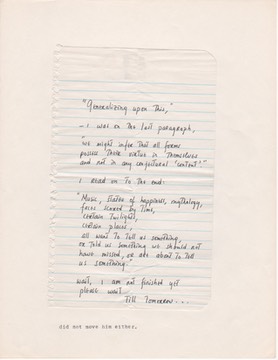 "Generalizing upon this,"
– i was on the last paragraph,
"we might infer that all forms
possess their virtue in themselves
and not in any conjectural 'content'."
i read on to the end:
"Music, states of happiness, mythology,
faces scarred by time,
certain twilights,
certain places,
all want to tell us something,
or told us something we should not
have missed, or are about to tell
us something."
wait, i am not finished yet
please wait
Till Tomorrow ...
did not move him either.